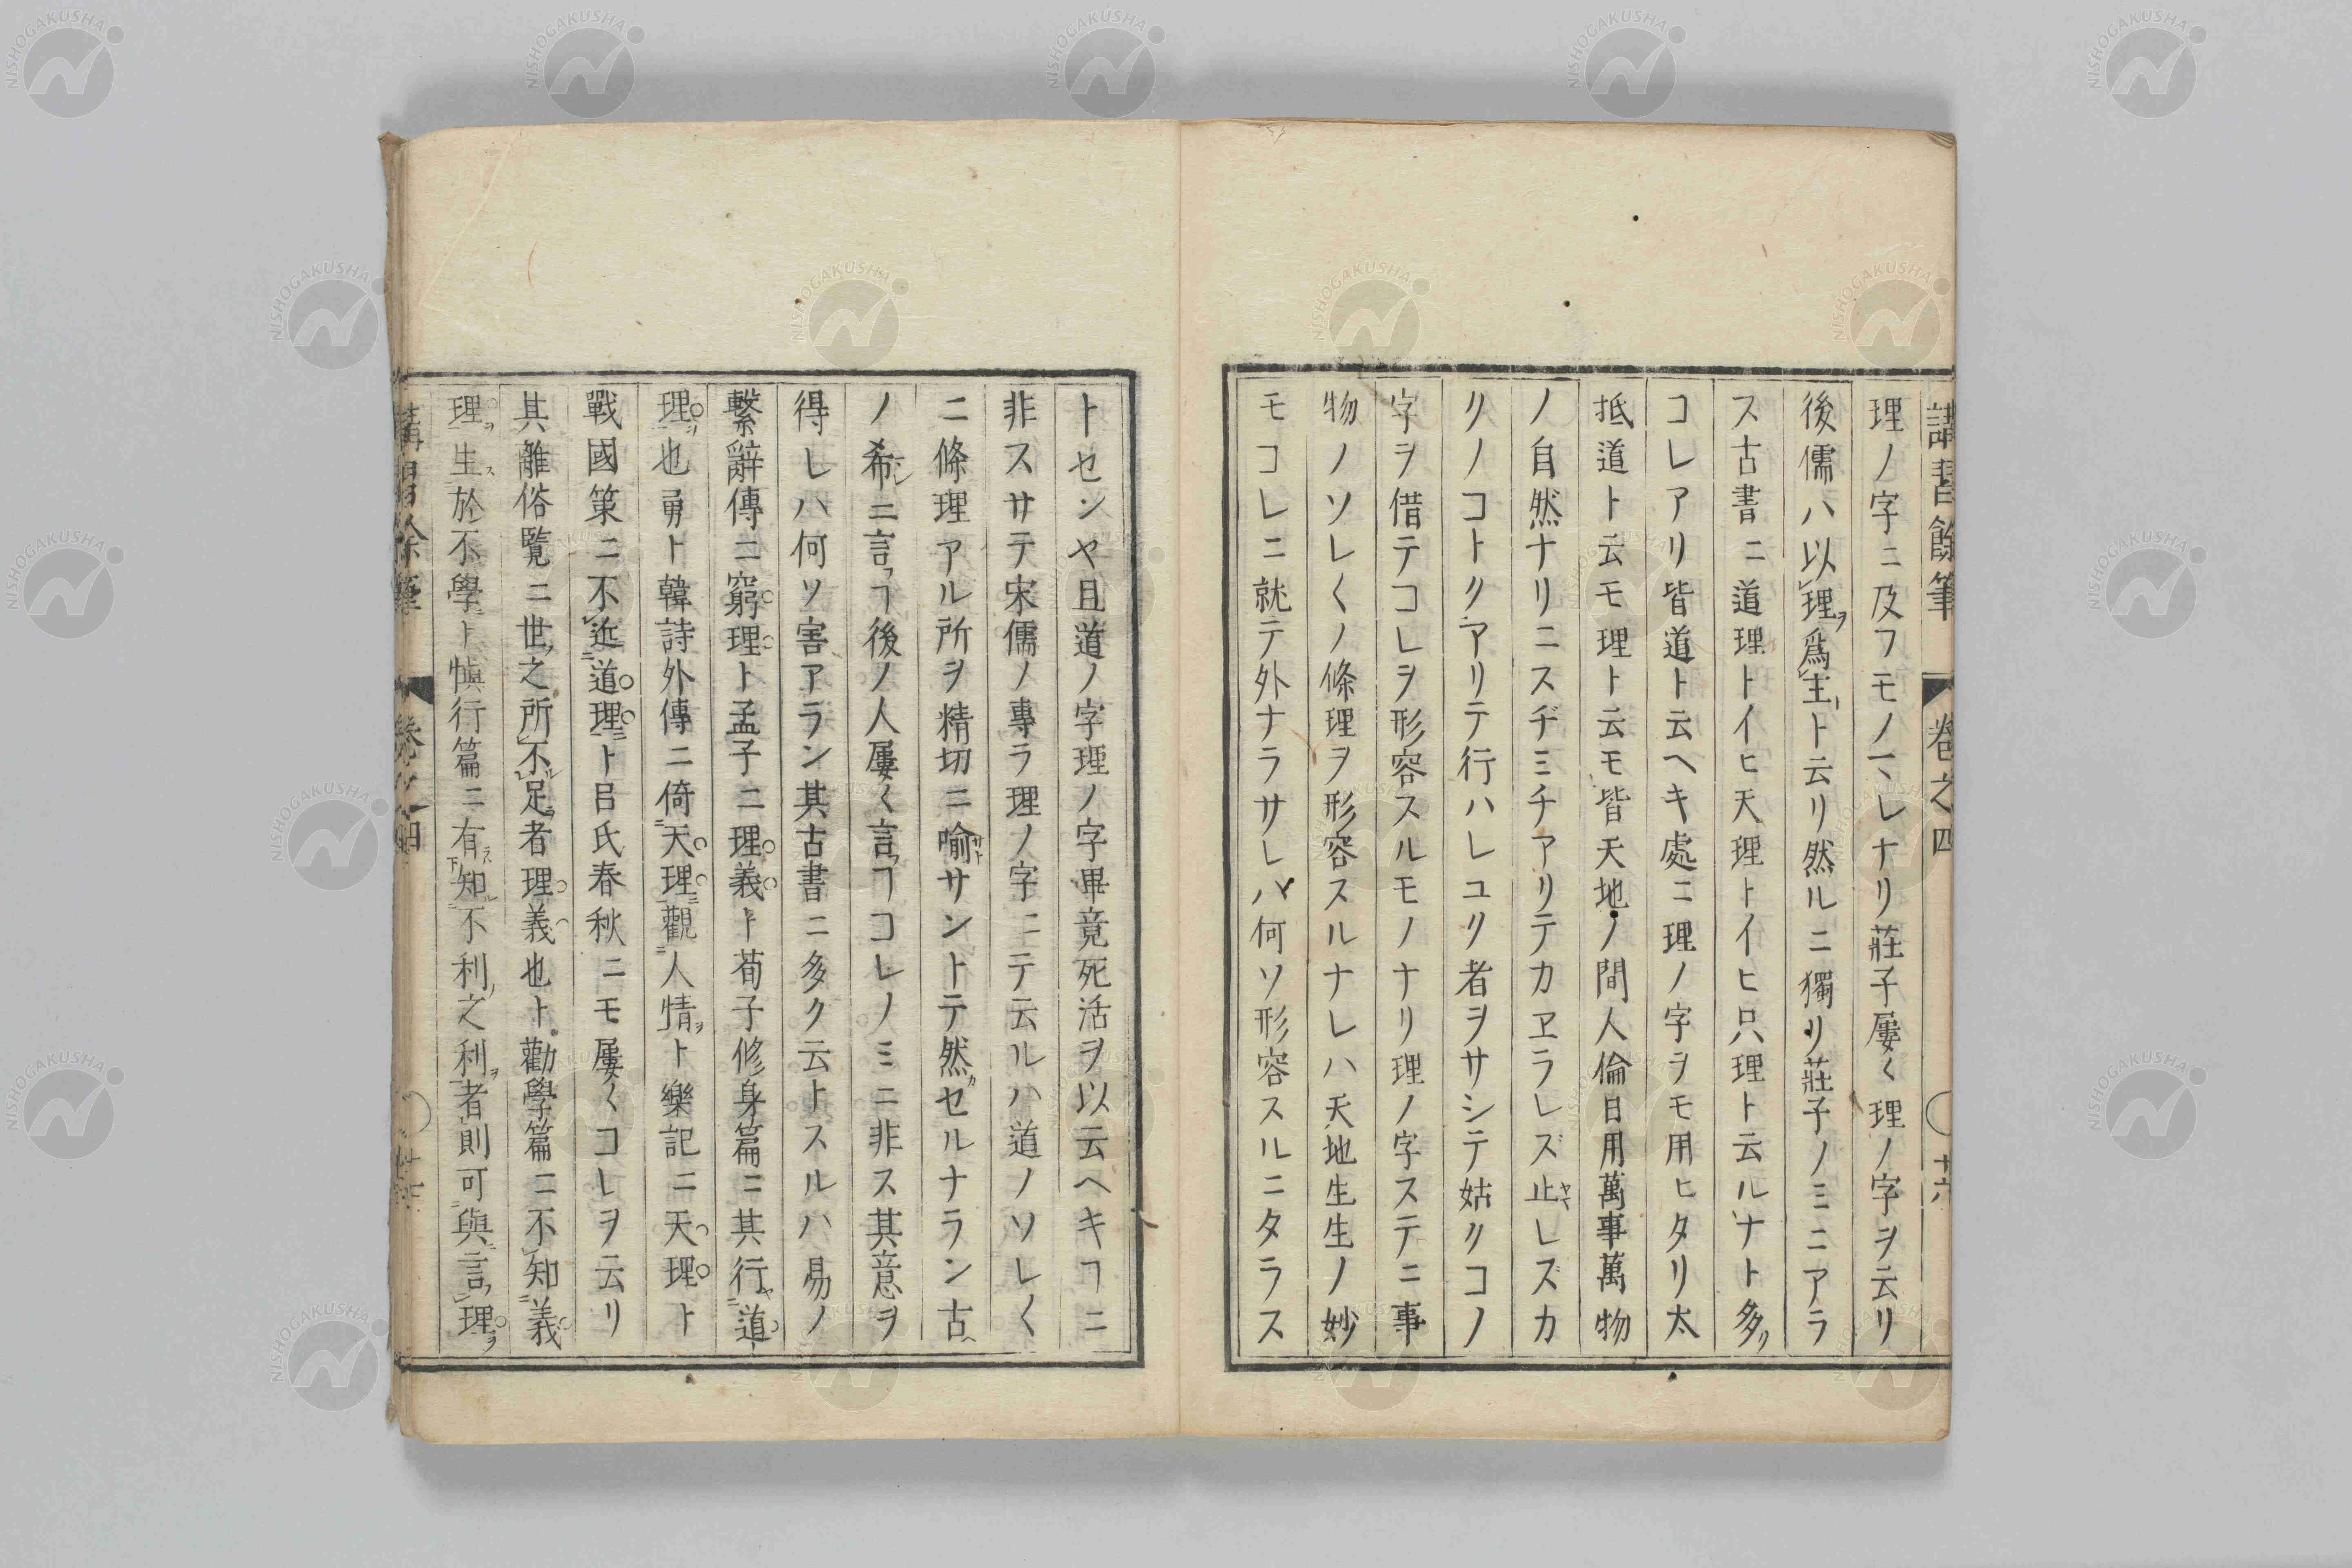 講習餘筆 卷之四 十六
理ノ字ニ及フモノマレナリ莊子屢〱理ノ字ヲ云リ
後儒ハ以理ヲ爲主ト云リ然ルニ獨リ莊子ノミニアラ
ス古書ニ道理トイヒ天理トイヒ只理ト云ルナト多ク
コレアリ皆道ト云ヘキ處ニ理ノ字ヲモ用ヒタリ太
抵道ト云モ理ト云モ皆天地ノ間人倫日用萬事萬物
ノ自然ナリニスヂミチアリテカヱラレズ止レズカ
クノコトクアリテ行ハレユク者ヲサシテ姑クコノ
字ヲ借テコレヲ形容スルモノナリ理ノ字ステニ事
物ノソレ〱ノ條理ヲ形容スルナレハ天地生生ノ妙
モコレニ就テ外ナラサレバ何ソ形容スルニタラス
トセンヤ且道ノ字理ノ字畢竟死活ヲ以云ヘキヿニ
非スサテ宋儒ノ專ラ理ノ字ニテ云ルハ道ノソレ〱
ニ條理アル所ヲ精切ニ喻サントテ然セルナラン古
ノ希ニ言ヿ後ノ人屢〱言ヿコレノミニ非ス其意ヲ
得レハ何ソ害アラン其古書ニ多ク云トスルハ易ノ
繫辭傳ニ窮理ト孟子ニ理義ト荀子修身篇ニ其行道
理ヲ也勇ト韓詩外傳ニ倚天理觀人情ヲト樂記ニ天理ト
戰國策ニ不近道理ト呂氏春秋ニモ屢〱コレヲ云リ
其離俗覽ニ世之所不足者理義也ト勸學篇ニ不知義
理ヲ生ス於不學ト愼行篇ニ有知不利之利ヲ者則可與言理ヲ
講習餘筆 卷之四